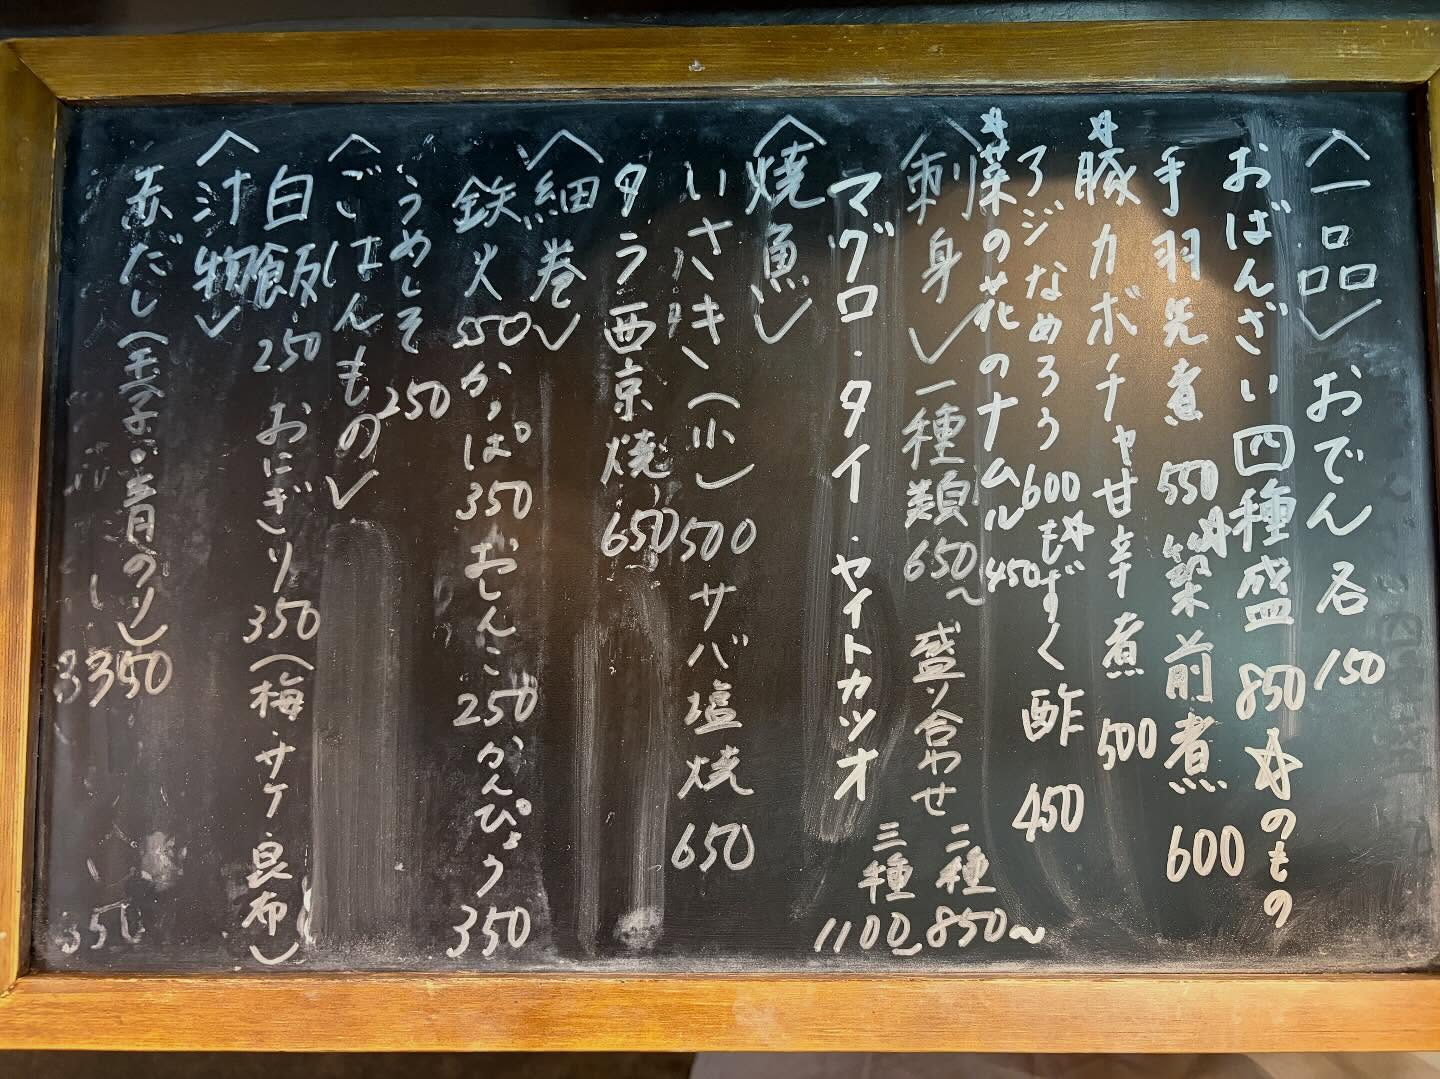 〈一品〉おでん各150
おばんざい四種盛 850 ☆のもの
手羽先煮 550 ☆筑前煮 600
☆豚カボチャ甘辛煮 500
アジなめろう 600 ☆もずく酢 450
☆菜の花のナムル 450
〈刺身〉一種類 650～ 盛り合わせ 二種 850～
三種 1100～
マグロ・タイ・ヤイトカツオ
〈焼魚〉
いさき(小) 500 サバ塩焼 650
タラ西京焼 650
〈細巻〉
鉄火 550 かっぱ 350 おしんこ 250 かんぴょう 350
うめしそ 250
〈ごはんもの〉
白飯 250 おにぎり 350 (梅・サケ・昆布)
〈汁物〉
赤だし(玉子・青のり) 350